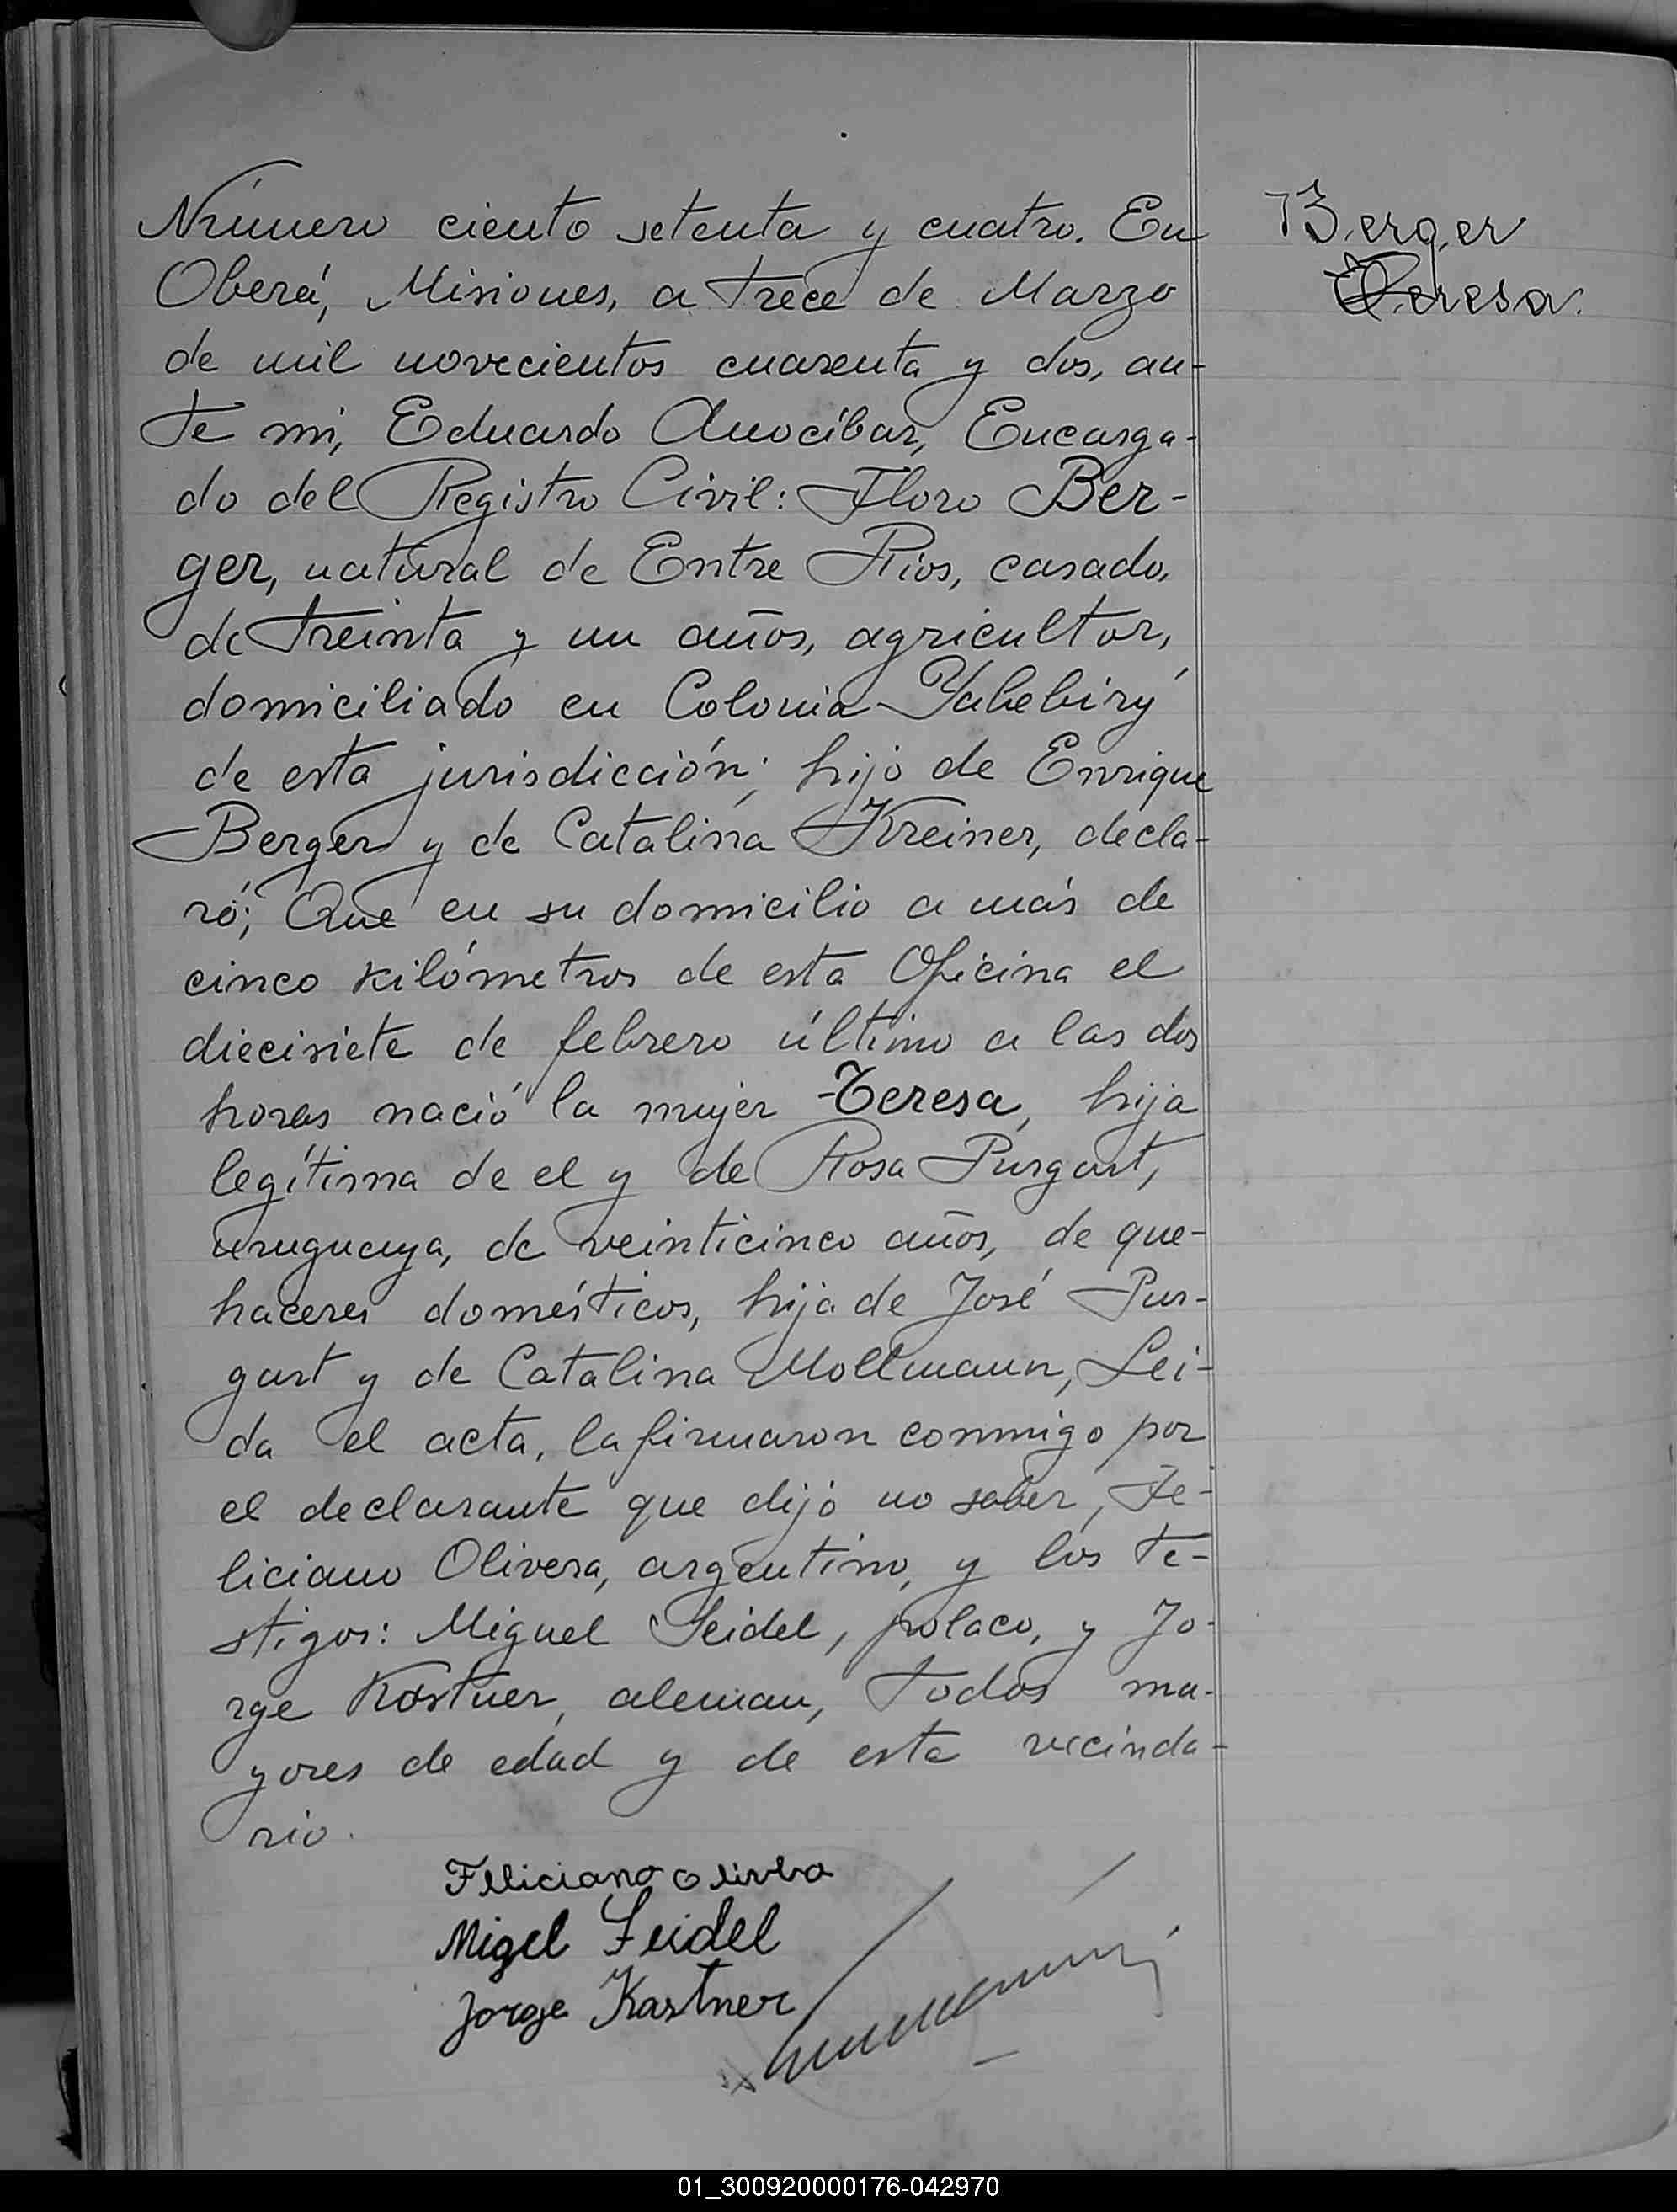 Número ciento setenta y cuatro. En
Oberá, Misiones, a trece de Marzo
de mil novecientos cuarenta y dos, an-
te mi, Eduardo Anocíbar, Encarga-
do del Registro Civil: Floro Ber-
ger, natural de Entre Rios, casado,
de treinta y un años, agricultor,
domiciliado en Colonia Yabebiry
de esta jurisdicción; hijo de Enrique
Berger y de Catalina Kreiner, decla-
ró; Que en su domicilio a más de
cinco kilómetros de esta Oficina el
diecisiete de febrero último a las dos
horas nació la mujer Teresa, hija
legítima de el y de Rosa Purgart,
uruguaya, de veinticinco años, de que-
haceres domésticos, hija de José Pur-
gart y de Catalina Mollmann, Lei-
da el acta, la firmaron conmigo por
el declarante que dijo no saber, Fe-
liciano Olivera, argentino, y los te-
stigos: Miguel Seidel, polaco, y Jo-
rge Kastner, aleman, todos ma-
yores de edad y de esta vecinda-
rio.
Berger
Teresa.
Feliciano
Migel Seidel
Jorge Kastner
01_300920000176-042970